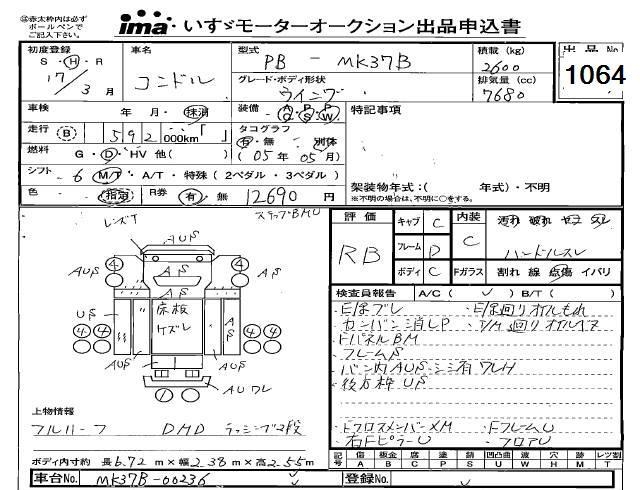 ㊟赤太枠内は必ず
ボールペンで
ご記入下さい。
ima・いすゞモーターオークション出品申込書
初度登録
S・H・R
17
3月
車名
コンドル
型式
PB - MK37B
グレード・ボディ形状
ウイング
積載 (kg)
2600
排気量 (cc)
7680
出品No.
1064
車検
年 月・抹消
装備
A/C P/S P/W
特記事項
走行 (B) 592 000km「 」
タコグラフ
有・無 別体
(05年05月)
燃料
G・D・HV 他( )
シフト
6 M/T・A/T・特殊 (2ペダル・3ペダル)
架装物年式:( 年式)・不明
※不明の場合は、不明に○をする。
色
R券 有・無 12690 円
レンズT
ステップBMU
AUS
AUS
AS
AS
4
4
US
床板
ケズレ
AS
4 4
4 4
AUS
AUS
AUワレ
評価
RB
キャブ C
フレーム D
ボディ C
内装
C
Fガラス
汚れ 破れ
ハンドルスレ
割れ 線 点傷 イバリ
検査員報告
A/C ( ✓ ) B/T ( )
カンバン消しP
FパネルBM
フレームS
後方枠US
上物情報
フルハーフ DMD ラッシング2段
FクロスメンバーXM
・FフレームU
右FピラーU
・フロアU
ボディ内寸約 長6.72m×幅2.38m×高2.55m
記号
傷 A
鈑金 B
腐 C
塗 P
錆 S
凹凸曲 U
波 W
穴 H
跡 M
レツ割 T
車台No.
MK37B-00236
登録No.